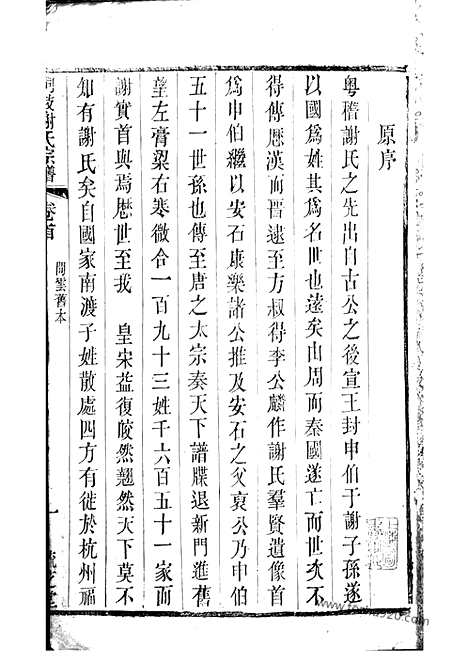 原序
粤稽謝氏之先出自古公之後宣王封申伯于謝子孫遂
以國爲姓其爲名世也遠矣由周而秦國遂亡而世次不
得傳歷漢而晋逮至方叔得李公麟作謝氏羣賢遺像首
爲申伯繼以安石康樂諸公推及安石之父哀公乃申伯
五十一世孫也傳至唐之太宗奏天下譜牒退新門進舊
望左膏粱右寒微合一百九十三姓千六百五十一家而
謝實首與焉歷世至我 皇宋益復皎然翹然天下莫不
知有謝氏矣自國家南渡子姓散處四方有徙於杭州福
謝氏宗譜 卷首 問雲舊本 一